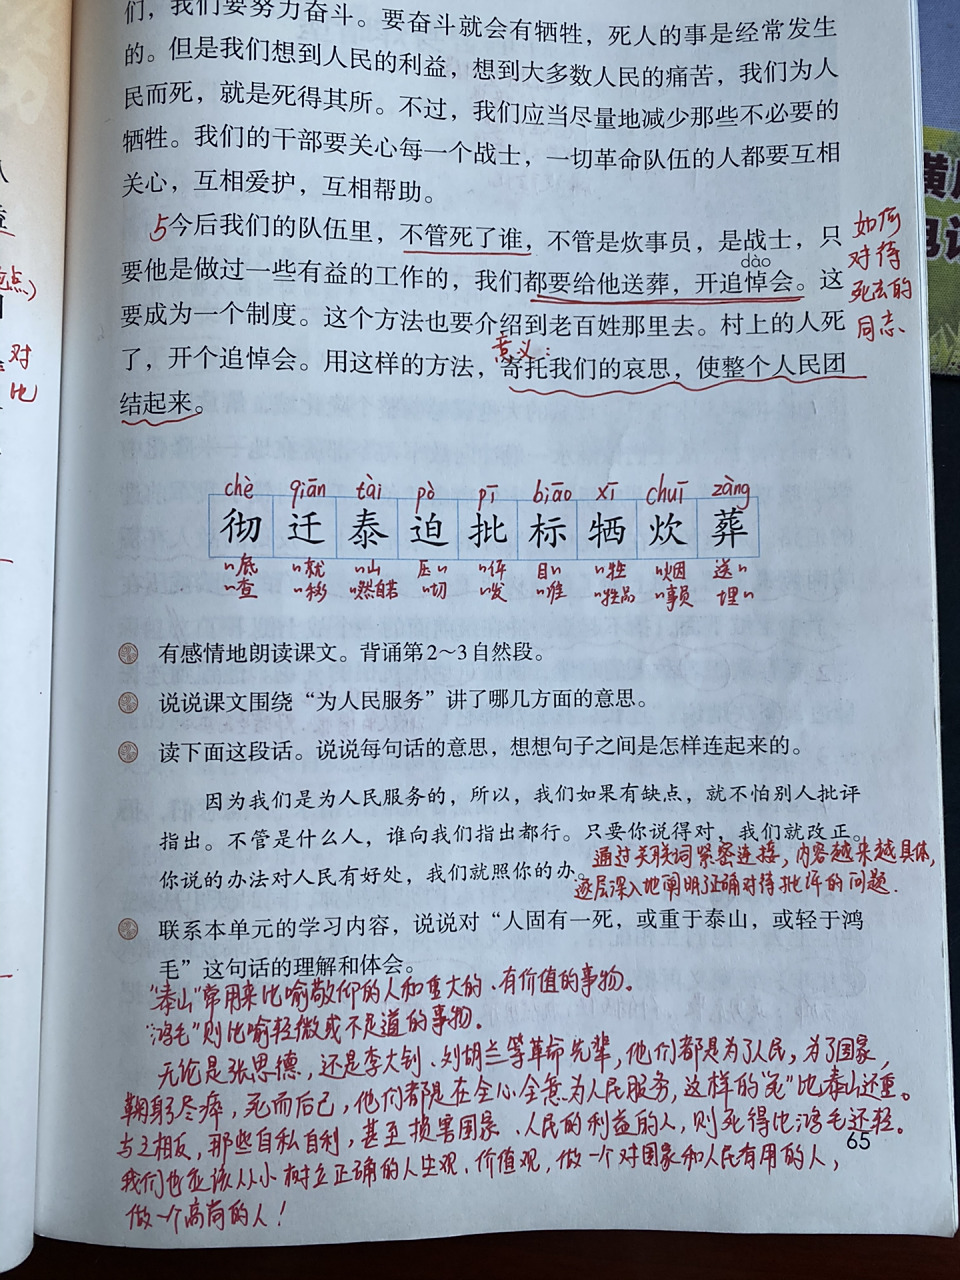 们，我们要努力奋斗。要奋斗就会有牺牲，死人的事是经常发生
的。但是我们想到人民的利益，想到大多数人民的痛苦，我们为人
民而死，就是死得其所。不过，我们应当尽量地减少那些不必要的
牺牲。我们的干部要关心每一个战士，一切革命队伍的人都要互相
关心，互相爱护，互相帮助。
5今后我们的队伍里，不管死了谁，不管是炊事员，是战士，只
dào
要他是做过一些有益的工作的，我们都要给他送葬，开追悼会。这
要成为一个制度。这个方法也要介绍到老百姓那里去。村上的人死
意义：
了，开个追悼会。用这样的方法，寄托我们的哀思，使整个人民团
结起来。
如何
对待
死去的
同志
对
比
chè qiān tài pò pī biāo xī chuī zàng
彻 迁 泰 迫 批 标 牺 炊 葬
〃底 〃就 〃山 压〃 〃评 目〃 〃牲 〃烟 送〃
〃查 〃移 〃然自若 〃切 〃发 〃准 〃牲品 〃事员 埋〃
有感情地朗读课文。背诵第2～3自然段。
说说课文围绕“为人民服务”讲了哪几方面的意思。
读下面这段话。说说每句话的意思，想想句子之间是怎样连起来的。
因为我们是为人民服务的，所以，我们如果有缺点，就不怕别人批评
指出。不管是什么人，谁向我们指出都行。只要你说得对，我们就改正。
你说的办法对人民有好处，我们就照你的办。
通过关联词紧密连接，内容越来越具体，
逐层深入地阐明了正确对待批评的问题.
联系本单元的学习内容，说说对“人固有一死，或重于泰山，或轻于鸿
毛”这句话的理解和体会。
“泰山”常用来比喻敬仰的人和重大的、有价值的事物。
“鸿毛”则比喻轻微或不足道的事物。
无论是张思德，还是李大钊、刘胡兰等革命先辈，他们都是为了人民，为了国家，
鞠躬尽瘁，死而后已，他们都是在全心全意为人民服务，这样的“死”比泰山还重。
与之相反，那些自私自利，甚至损害国家、人民的利益的人，则死得比鸿毛还轻。
65
我们也应该从小树立正确的人生观、价值观，做一个对国家和人民有用的人，
做一个高尚的人！